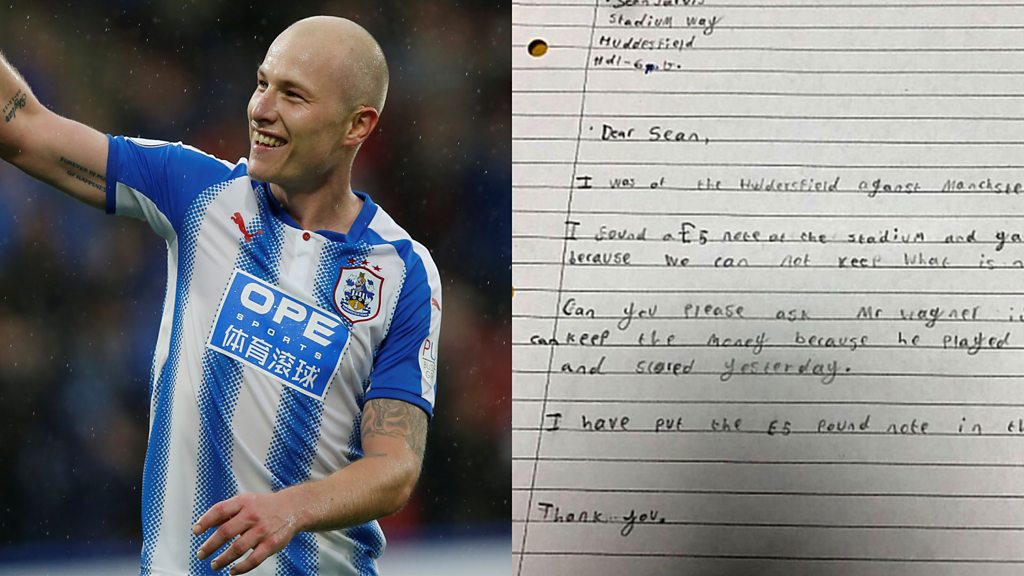 OPE
SPORTS
体育滚球
Sean Jarvis
Stadium way
Huddesfield
Hd1-6
Dear Sean,
I was at the Huldersfield aganst Manchste
I found a £5 note at the stadium and ga
because we can not keep what is n
Can you please ask Mr wagner i
can keep the money because he played
and scored yesterday.
I have put the £5 pound note in th
Thank you.